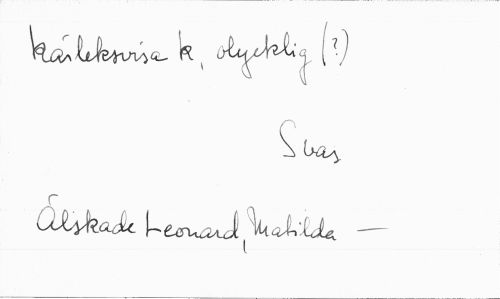 Kärleksvisa k, olycklig (?)
Svas
Älskade Leonard, Matilda —